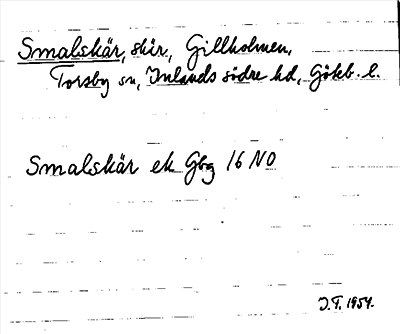 Smalskär, skär, Gillholmen,
Torsby sn, Inlands södre hd, Göteb. l.
Smalskär ek Gbg 16 NO
J.F. 1954.